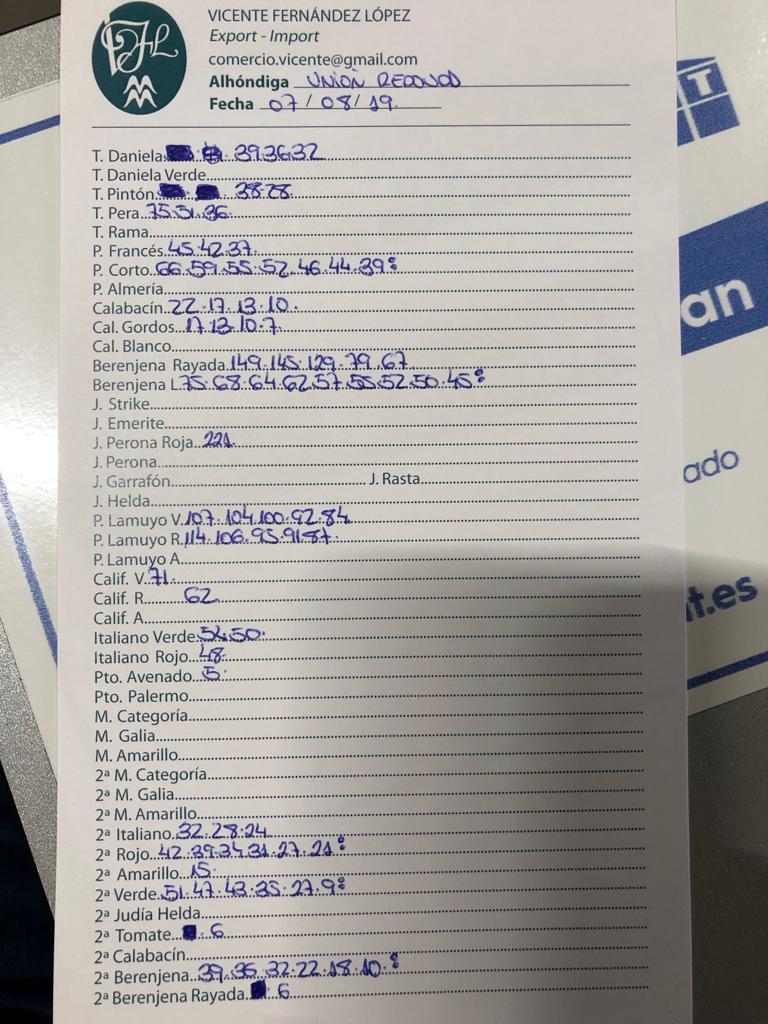 VICENTE FERNÁNDEZ LÓPEZ
Export - Import
comercio.vicente@gmail.com
Alhóndiga UNION REDONDO
Fecha 07/08/19.
T. Daniela 39.36.32
T. Daniela Verde
T. Pintón 38.28
T. Pera 75.51.36
T. Rama
P. Francés 45.42.37.
P. Corto 66.59.55.52.46.44.39
P. Almería
Calabacín 22.17.13.10.
Cal. Gordos 17.13.10.7.
Cal. Blanco
Berenjena Rayada 149.145.129.79.67
Berenjena L 75.68.64.62.57.55.52.50.45
J. Strike
J. Emerite
J. Perona Roja 221.
J. Perona
J. Garrafón J. Rasta
J. Helda
P. Lamuyo V. 107.104.100.92.84
P. Lamuyo R. 114.106.95.91.87.
P. Lamuyo A
Calif. V. 71.
Calif. R. 62
Calif. A
Italiano Verde 54.50.
Italiano Rojo 48.
Pto. Avenado 5.
Pto. Palermo
M. Categoría
M. Galia
M. Amarillo
2ª M. Categoría
2ª M. Galia
2ª M. Amarillo
2ª Italiano 32.28.24
2ª Rojo 42.39.34.31.27.21
2ª Amarillo 15.
2ª Verde 51.47.43.35.27.9
2ª Judía Helda
2ª Tomate 6
2ª Calabacín
2ª Berenjena 39.35.32.22.18.10.
2ª Berenjena Rayada 6
T
an
ado
t.es